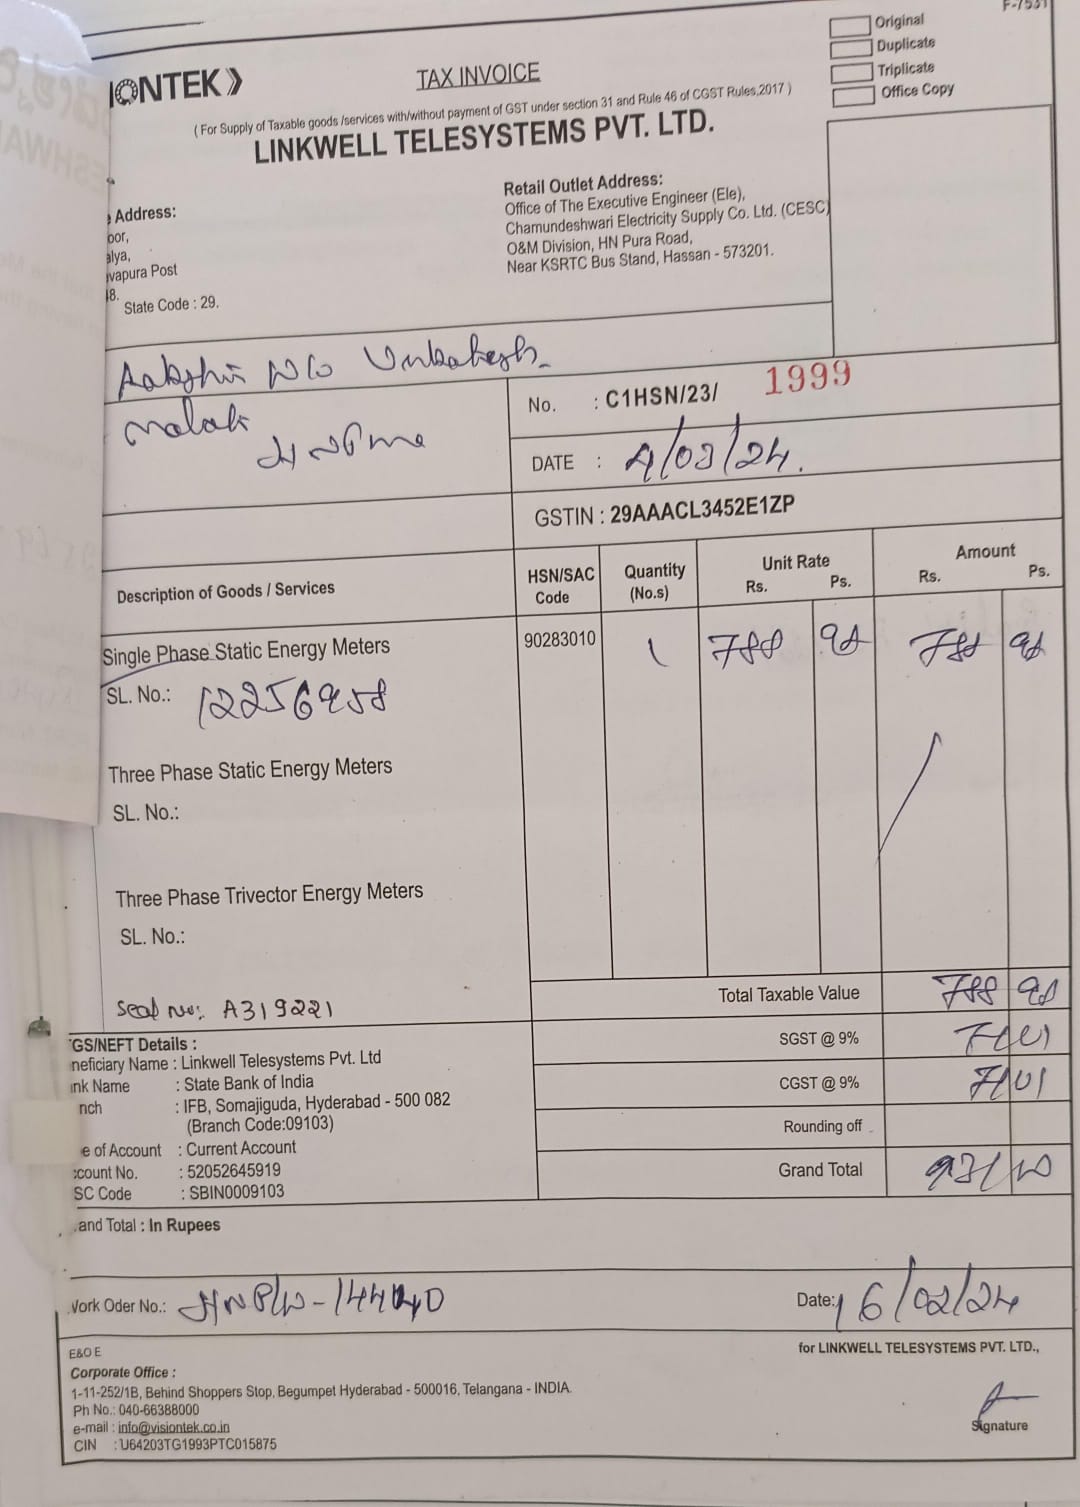 F-7531
Original
Duplicate
Triplicate
Office Copy
IONTEK
TAX INVOICE
( For Supply of Taxable goods /services with/without payment of GST under section 31 and Rule 46 of CGST Rules,2017 )
LINKWELL TELESYSTEMS PVT. LTD.
Address:
oor,
alya,
vapura Post
48.
State Code : 29.
Retail Outlet Address:
Office of The Executive Engineer (Ele),
Chamundeshwari Electricity Supply Co. Ltd. (CESC)
O&M Division, HN Pura Road,
Near KSRTC Bus Stand, Hassan - 573201.
W/o
No. : C1HSN/23/ 1999
DATE : 4/03/24.
GSTIN : 29AAACL3452E1ZP
Description of Goods / Services
HSN/SAC Code
Quantity (No.s)
Unit Rate
Rs. Ps.
Amount
Rs. Ps.
Single Phase Static Energy Meters 90283010 1 788 98 788 98
SL. No.: 12256958
Three Phase Static Energy Meters
SL. No.:
Three Phase Trivector Energy Meters
SL. No.:
Seal no: A319221
Total Taxable Value 788 98
SGST @ 9% 71 01
CGST @ 9% 71 01
Rounding off
Grand Total 931
GS/NEFT Details :
neficiary Name : Linkwell Telesystems Pvt. Ltd
nk Name : State Bank of India
nch : IFB, Somajiguda, Hyderabad - 500 082
(Branch Code:09103)
e of Account : Current Account
count No. : 52052645919
SC Code : SBIN0009103
and Total : In Rupees
Work Oder No.: HNP/W-14440
Date: 16/02/24
E&O E
for LINKWELL TELESYSTEMS PVT. LTD.,
Corporate Office :
1-11-252/1B, Behind Shoppers Stop, Begumpet Hyderabad - 500016, Telangana - INDIA.
Ph No.: 040-66388000
e-mail : info@visiontek.co.in
CIN : U64203TG1993PTC015875
Signature